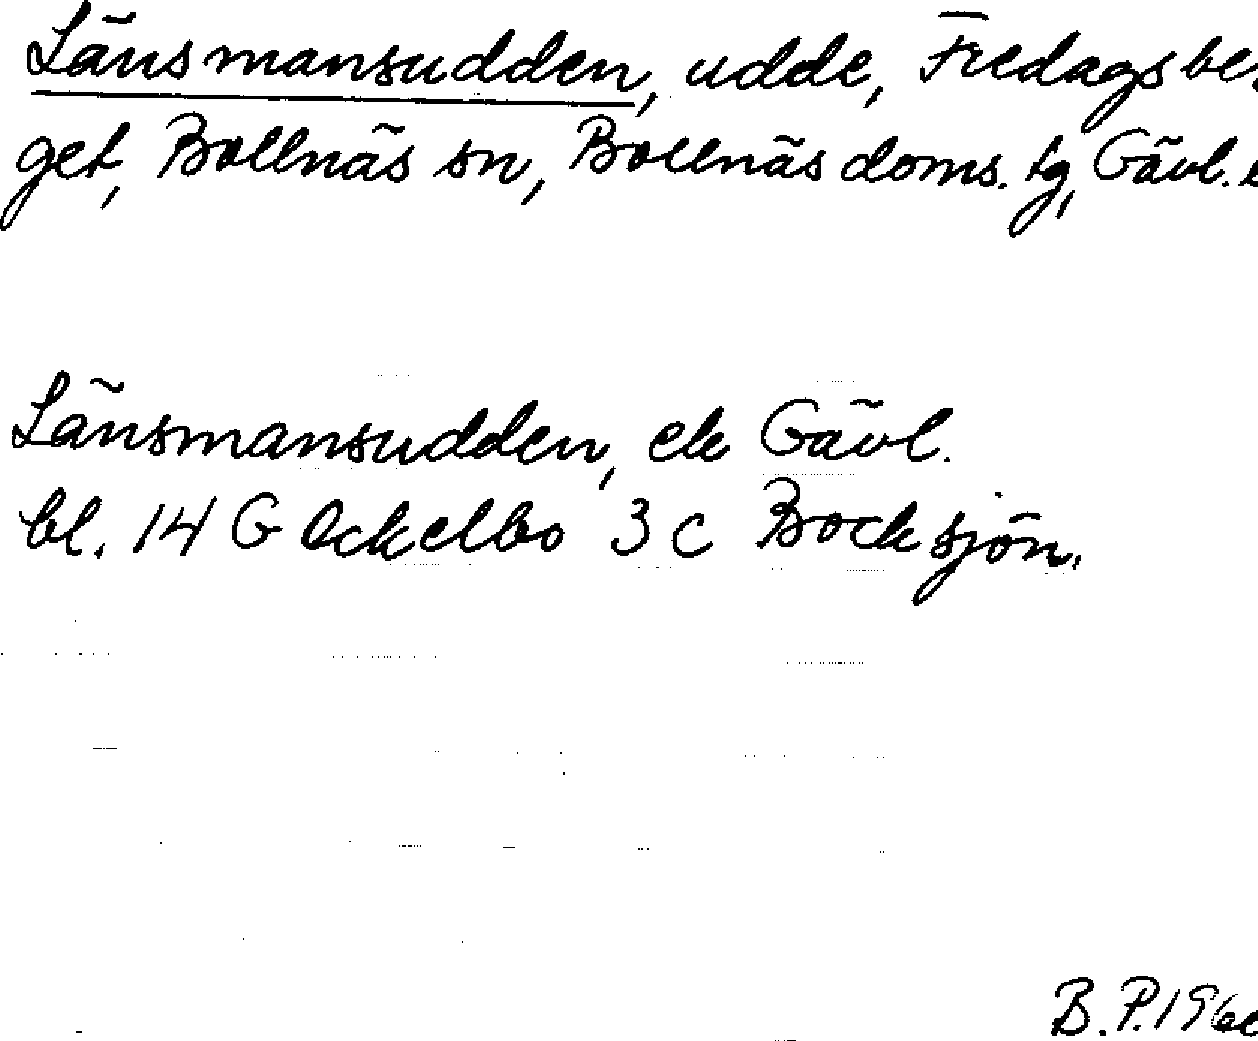 Länsmansudden, udde, Fredagsber
get, Bollnäs sn, Bollnäs doms. tg, Gävl.
Länsmansudden, ek Gävl.
bl. 14 G Ockelbo 3 c Bocksjön.
B.P.